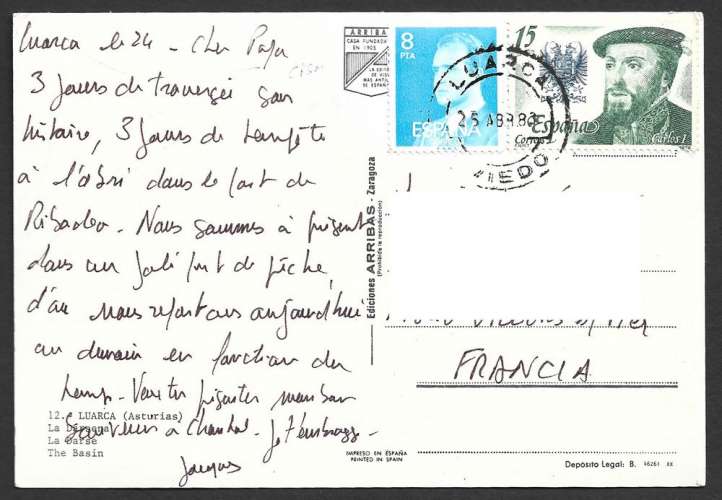 Luarca le 24 - Cher Papa
3 Jours de traversée sans
histoire, 3 Jours de tempête
à l'abri dans le port de
Ribadeo. Nous sommes à présent
dans un joli port de pêche,
d'où nous repartons aujourd'hui
ou demain en fonction du
temps
à Chantal. Je t'embrasse
Jacques
12. LUARCA (Asturias)
La
La Darse
The Basin
ARRIBAS
CASA FUNDADA
EN 1905
MAS ANTIG
DE ESPAÑ
Ediciones ARRIBAS - Zaragoza
(Prohibida la reproducción)
IMPRESO EN ESPAÑA
PRINTED IN SPAIN
8
PTA
ESPAÑA
15
España
Correos
Carlos I
LUARCA
25 ABR 88
OVIEDO
FRANCIA
Depósito Legal: B.